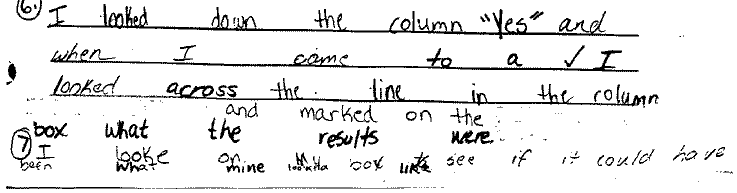 6. I looked down the column "Yes" and
when I came to a ✓ I
looked across the line in the column
and marked on the
box what the results were.
7 I looke on my box to see if it could have
been what mine looked like